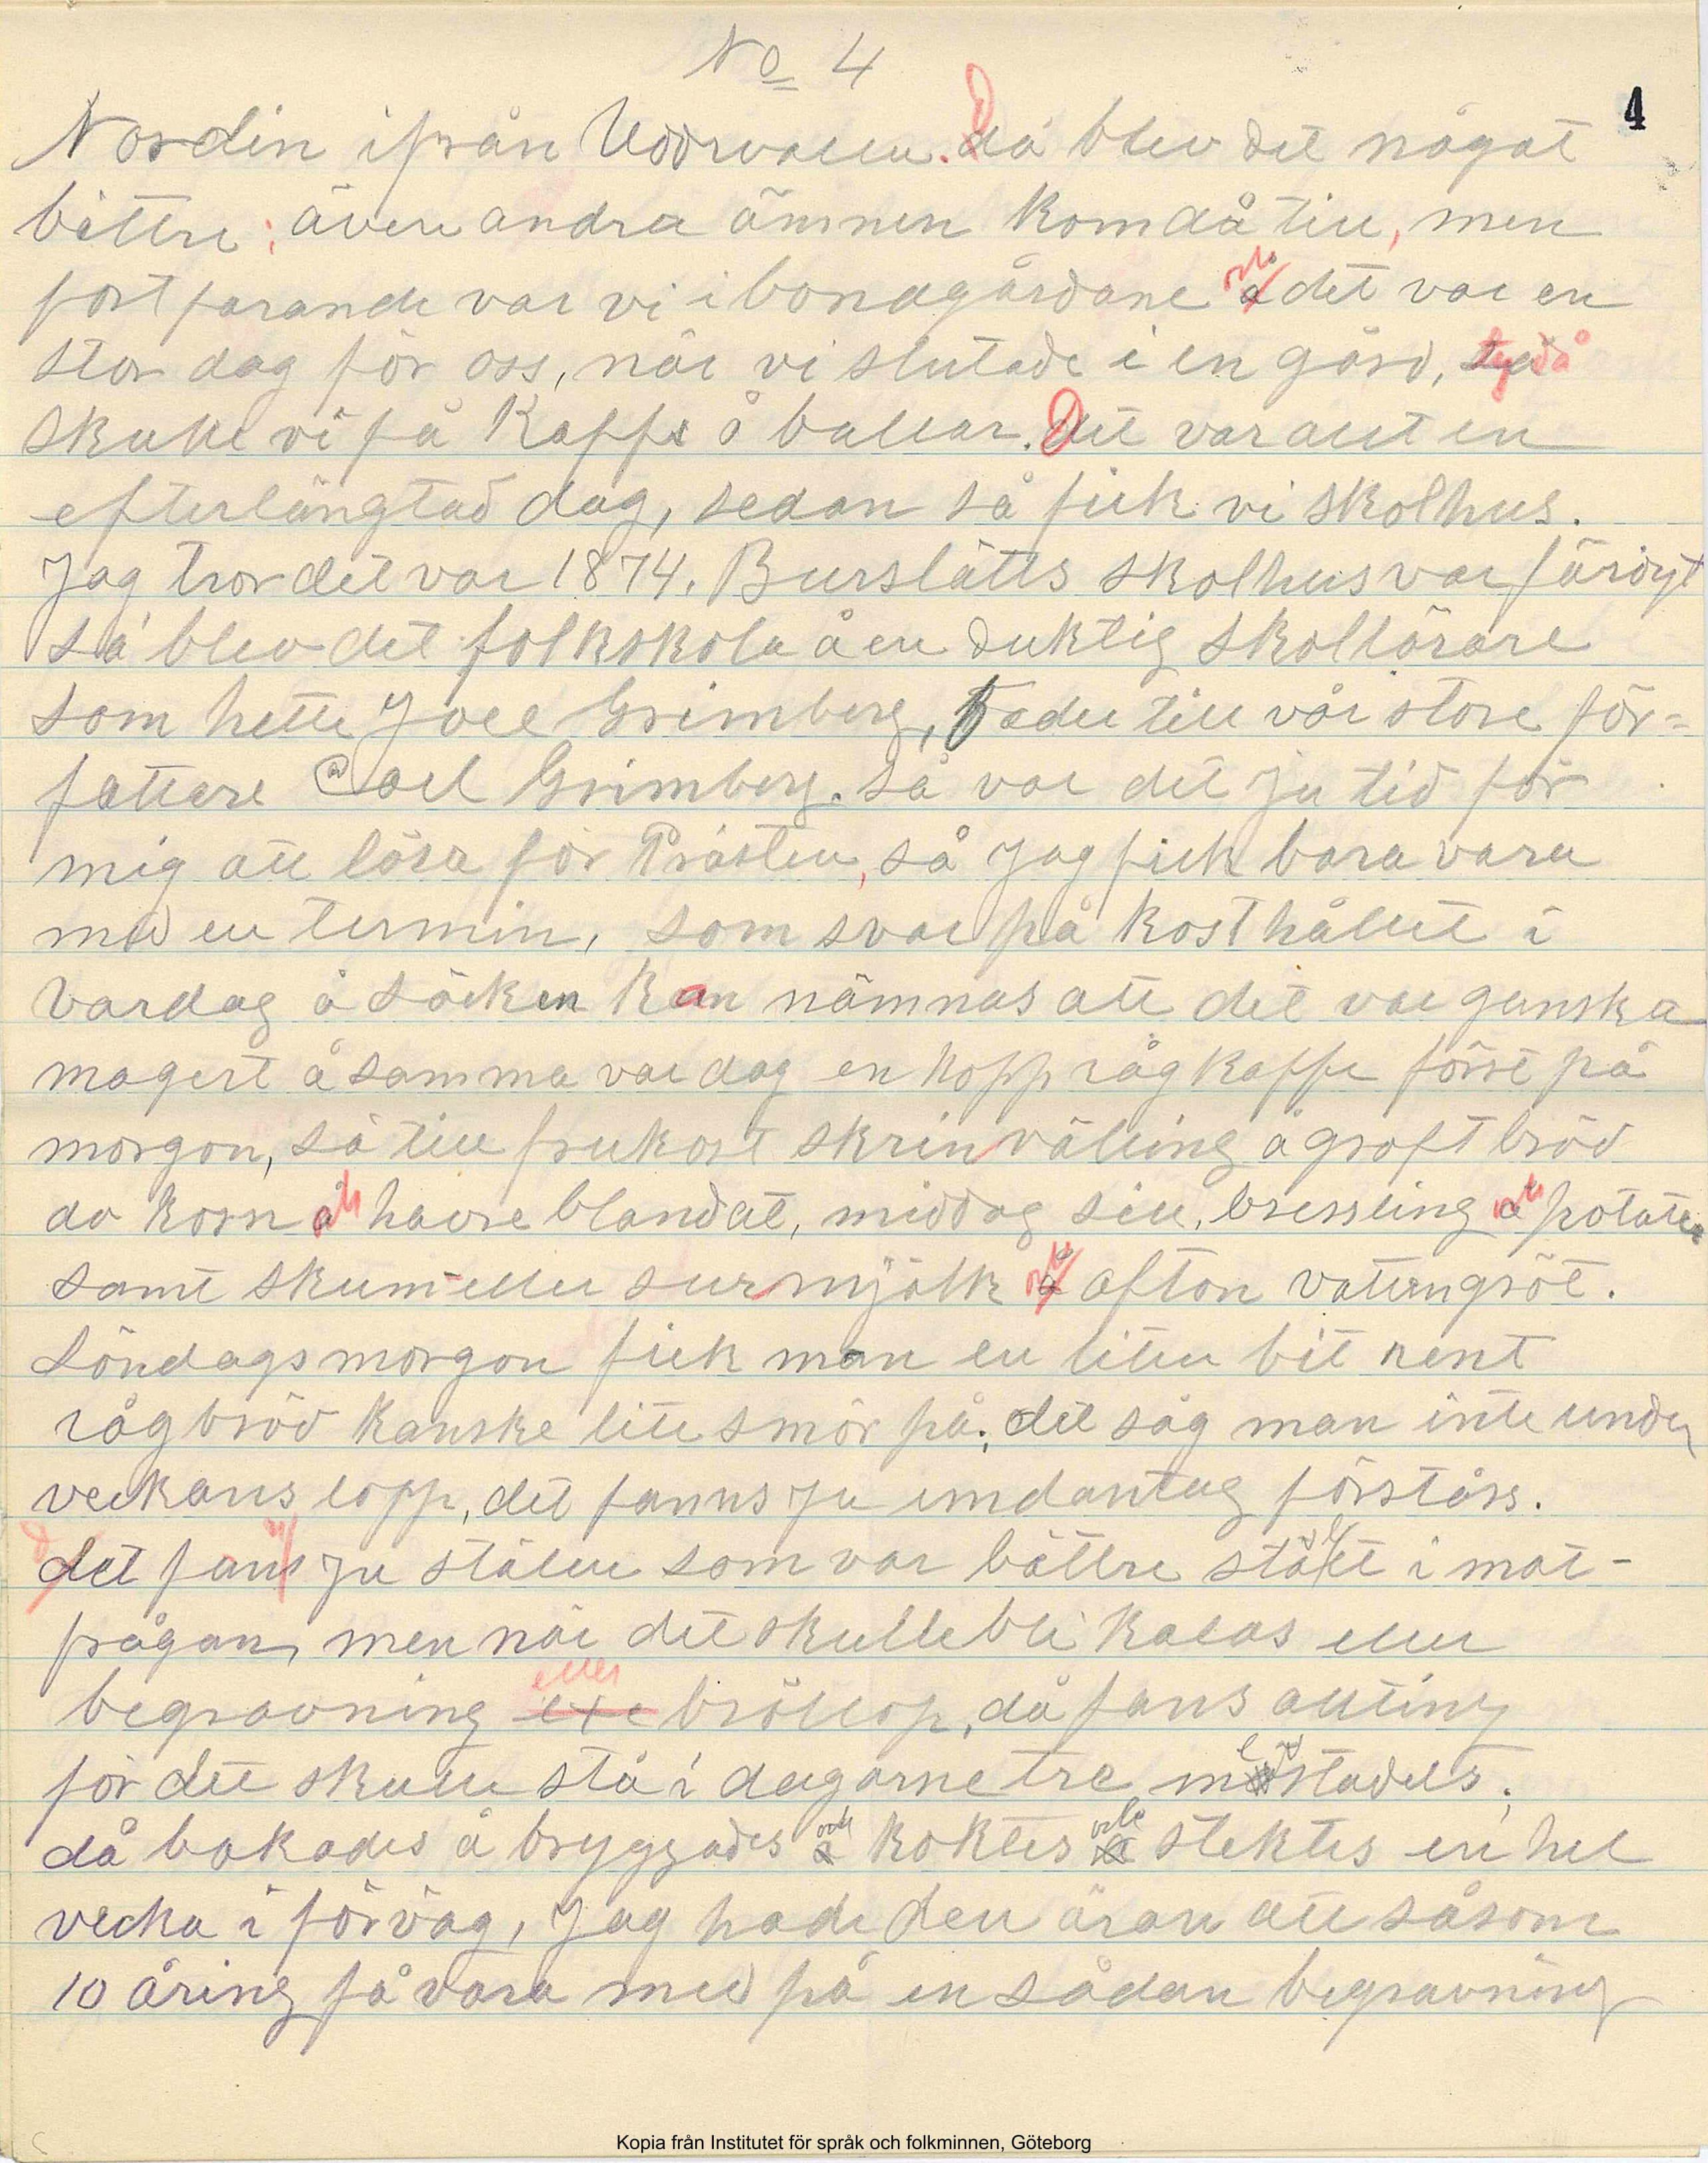 No 4
4
Nordin ifrån Uddevalla. Då blev det något
bättre; även andra ämnen kom då till, men
fortfarande var vi i bondgårdane och det var en
stor dag för oss, när vi slutade i en gård, ty då
skulle vi få Kaffe å bullar. Det var allt en
efterlängtad dag, sedan så fick vi skolhus.
Jag tror det var 1874. Burslätts skolhus var färdigt
så blev det folkskola å en duktig skollärare
som hette Joel Grimberg, Fader till vår store för=
fattare Carl Grimberg. så var det ju tid för
mig att läsa för Prästen, så Jag fick bara vara
med en termin, som svar på kosthållet i
Vardag å söcken kan nämnas att det var ganska
magert å samma var dag en kopp rågkaffe först på
morgon, så till frukost skrinvälling å groft bröd
av korn och havre blandat, middag sill, bressling och potates
samt skum-eller surmjölk och afton vattengröt.
Söndagsmorgon fick man en liten bit rent
rågbröd kanske lite smör på; det såg man inte under
veckans lopp, det fanns ju undantag förståss.
det fanns ju ställen som var bättre ställt i mat-
frågan, men när det skulle bli kalas eller
begravning eller bröllop, då fans allting
för det skulle stå i dagarne tre medstadels;
då bakades å bryggades och koktes och stektes en hel
vecka i förväg, Jag hade den äran att såsom
10 åring få vara med på en sådan begravning
Kopia från Institutet för språk och folkminnen, Göteborg